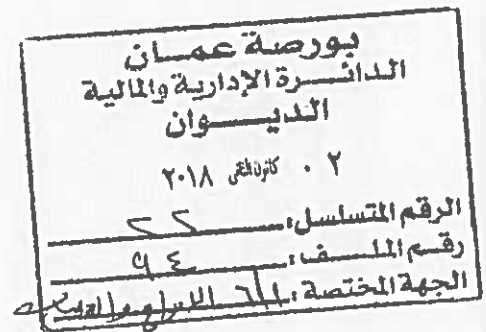 بورصة عمان
الدائرة الإدارية والمالية
الديوان
٠٢ كانون الثاني ٢٠١٨
الرقم المتسلسل: ٢٢
رقم الملف: ٩٤
الجهة المختصة: